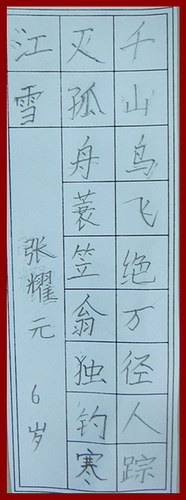 千山鸟飞绝万径人踪
灭孤舟蓑笠翁独钓寒
江雪
张耀元 6岁